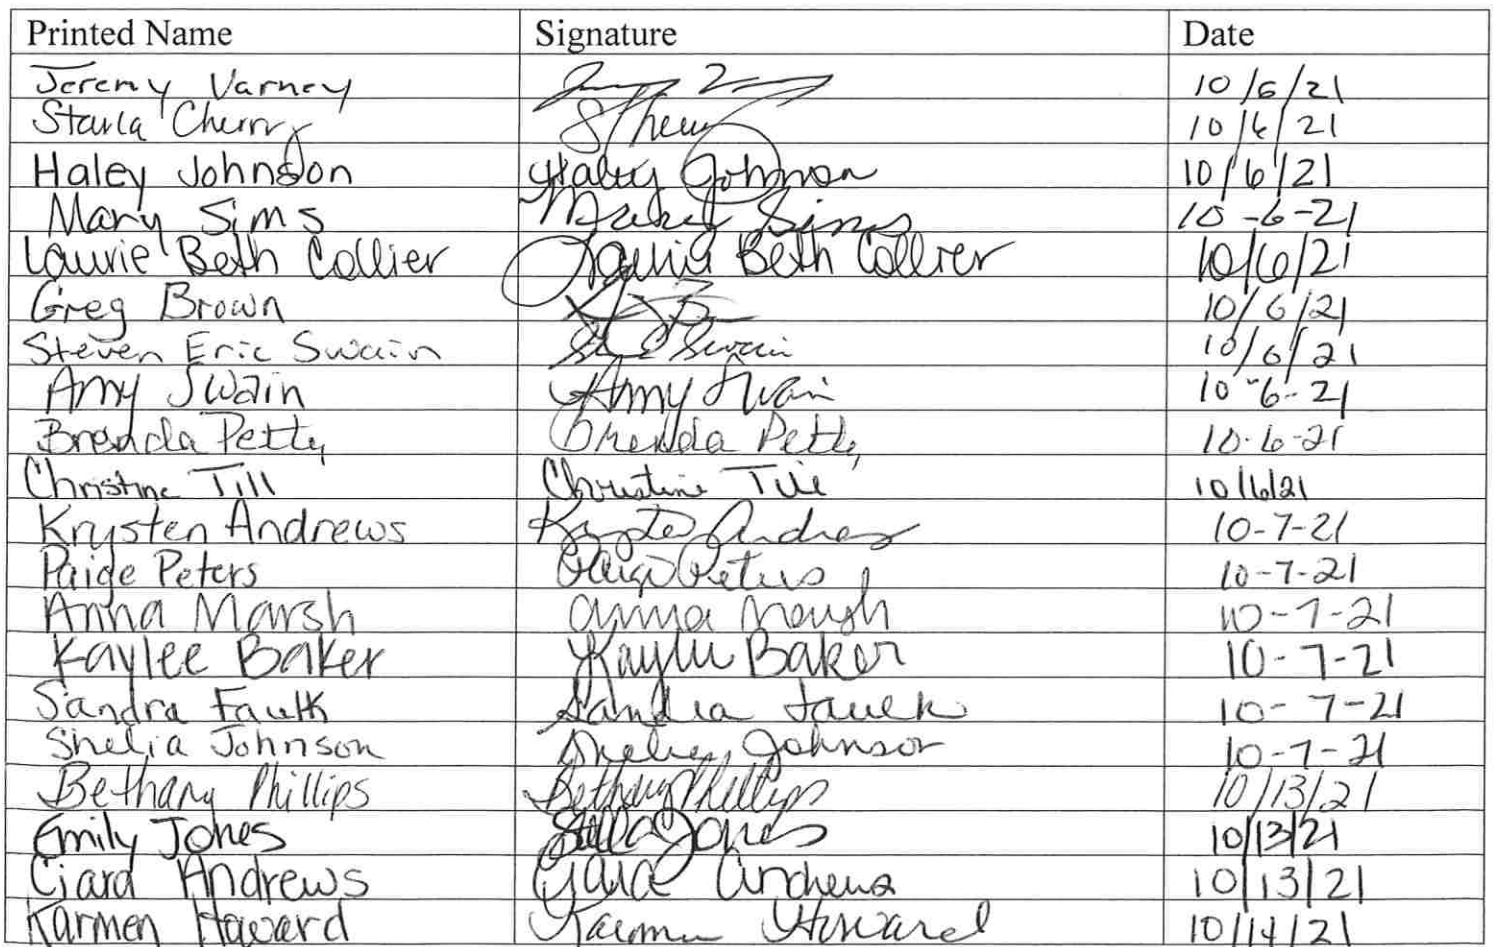 Printed Name Signature Date
Jeremy Varney 10/6/21
Starla Cherry SCherry 10/6/21
Haley Johnson Haley Johnson 10/6/21
Mary Sims Mary Sims 10-6-21
Laurie Beth Collier Laurie Beth Collier 10/6/21
Greg Brown 10/6/21
Steven Eric Swain Swain 10/6/21
Amy Swain Amy Swain 10-6-21
Brenda Petty Brenda Petty 10-6-21
Christine Till Christine Till 10/6/21
Krysten Andrews Krysten Andrews 10-7-21
Paige Peters Paige Peters 10-7-21
Anna Marsh Anna Marsh 10-7-21
Kaylee Baker Kaylee Baker 10-7-21
Sandra Faulk Sandra Faulk 10-7-21
Shelia Johnson Shelia Johnson 10-7-21
Bethany Phillips Bethany Phillips 10/13/21
Emily Jones Jones 10/13/21
Ciara Andrews Ciara Andrews 10/13/21
Karmen Howard Karmen Howard 10/14/21